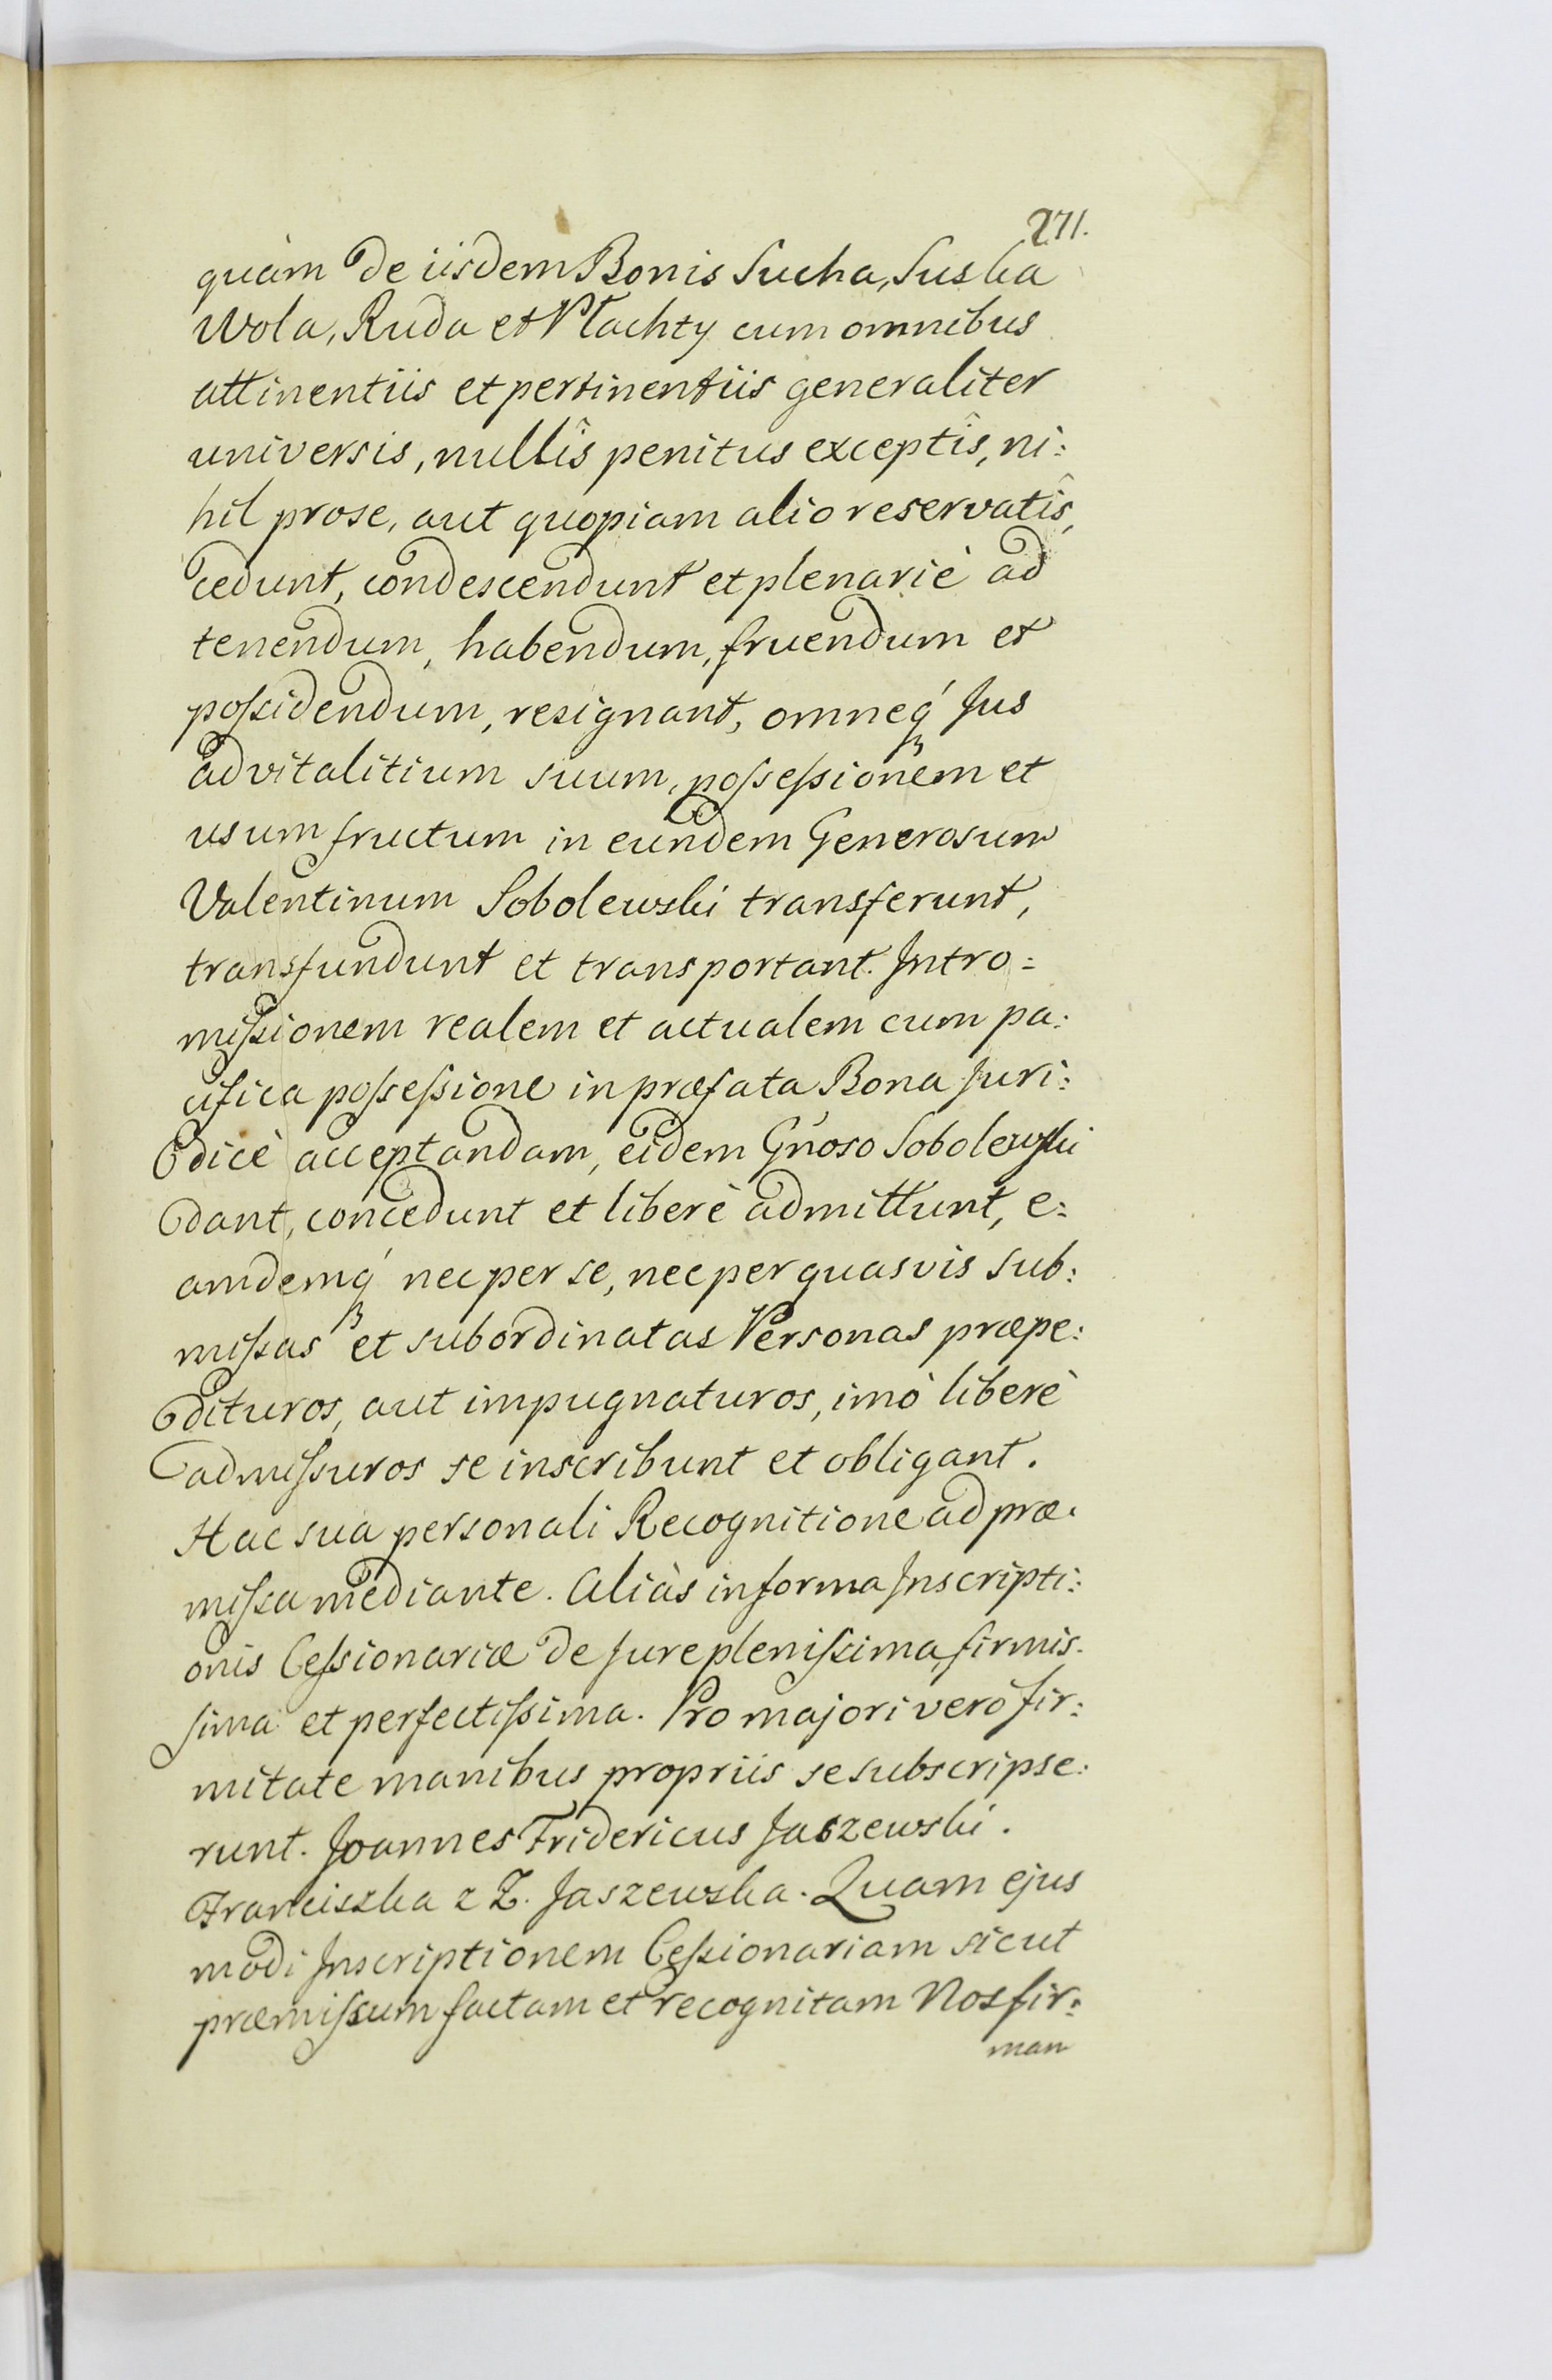 271.
quàm de iisdem Bonis Sucha, Suska
Wola, Ruda et Płachty cum omnibus
attinentiis et pertinentiis generaliter
universis, nullîs penitus exceptîs, ni:
hil pro se, aut quopiam alio reservatîs,
cedunt, condescendunt et plenariè ad
tenendum, habendum, fruendum et
poſsidendum, resignant, omneq́ Jus
advitalitium suum, poſseſsionem et
usumfructum in eundem Generosum
Valentinum Sobolewski transferunt,
transfundunt et transportant. Intro:
miſsionem realem et actualem cum pa:
cifica poſseſsione in præfata Bona Juri:
dicè acceptandam, eidem Gńoso Sobolewski
dant, concedunt et liberè admittunt, e:
amdemq́ nec per se, nec per quasvis sub:
miſsas et subordinatas Personas præpe:
dituros, aut impugnaturos, imò liberè
admiſsuros se inscribunt et obligant.
Hac sua personali Recognitione ad præ:
miſsa mediante. Aliàs in forma Inscripti:
onis Ceſsionariæ de Jure pleniſsima, firmis:
sima et perfectiſsima. Pro majori verò fir:
mitate manibus propriis se subscripse:
runt. Joannes Fridericus Jaszewski.
Franciszka z Z. Jaszewska. Quam ejus
modi Inscriptionem Ceſsionariam sicut
præmiſsum factam et recognitam Nos fir:
man